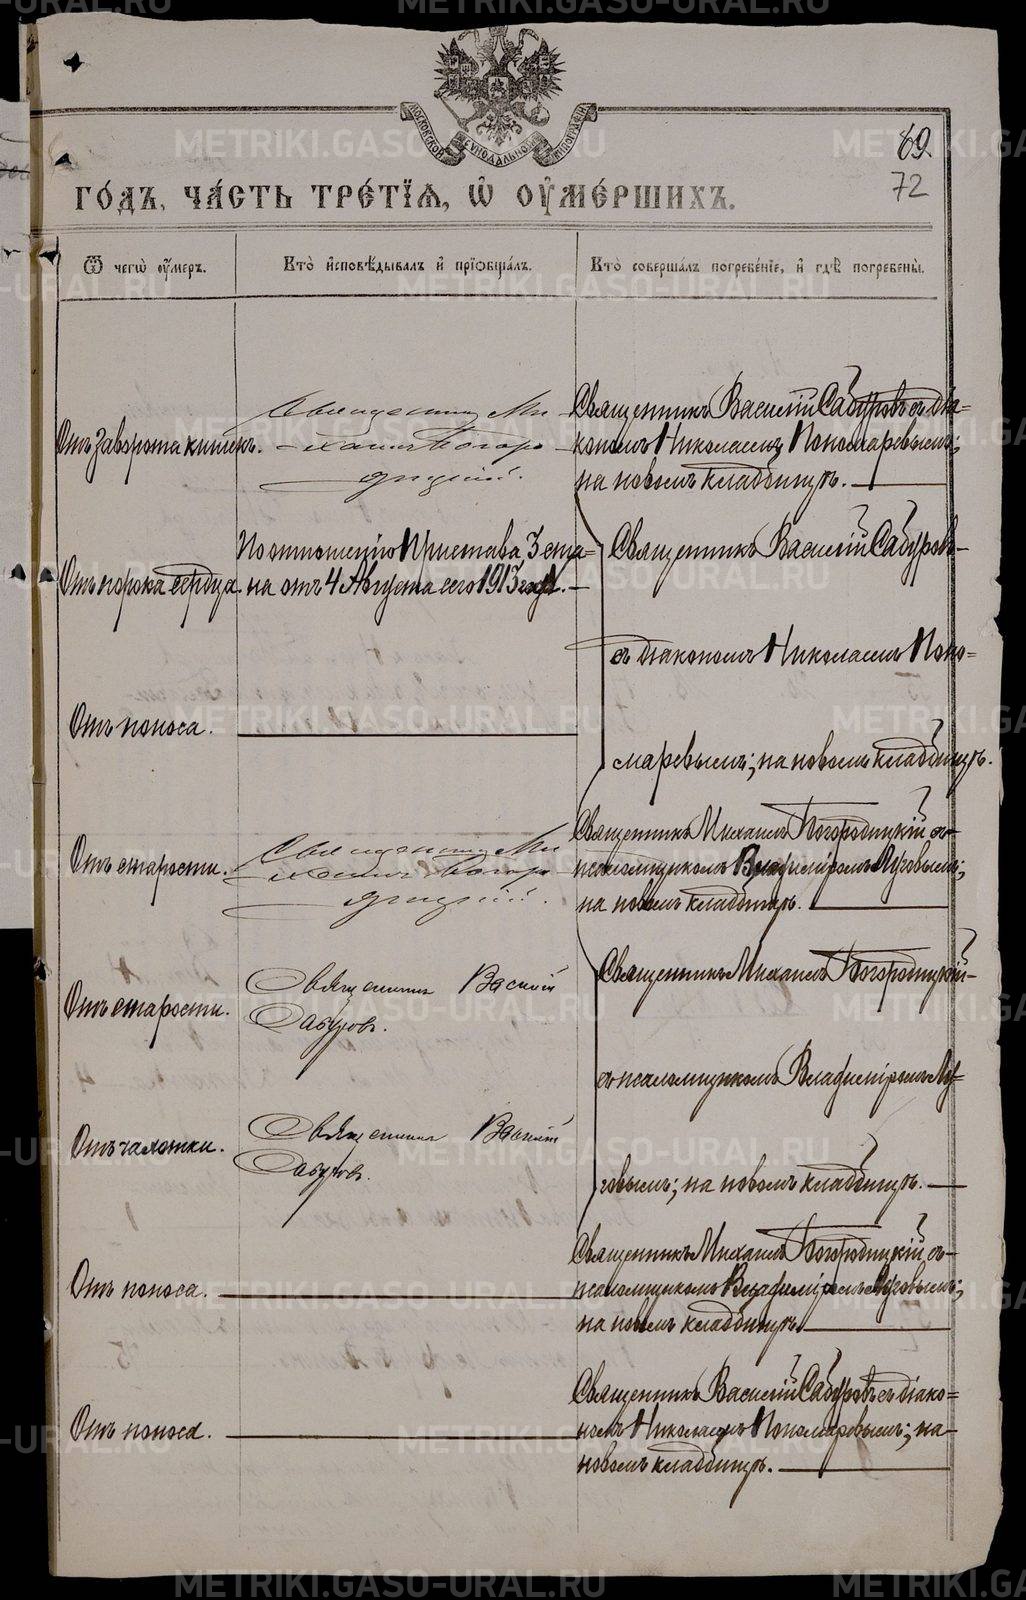 МОСКОВСКОЙ СѴНОДАЛЬНОЙ ТИПОГРАФІИ
69.
72
ГО́ДЪ, ЧА́СТЬ ТРЕ́ТЇѦ, Ѡ҆ ОУ҆МЕ́РШИХЪ.
Ѿ чегѡ̀ оу҆́меръ.
Кто̀ и҆сповѣ́дывалъ и҆ прїѻбща́лъ.
Кто̀ соверша́лъ погребе́нїе, и҆ гдѣ̀ погребены̀.
Отъ заворота кишекъ.
Священникъ Ми-
хаилъ Богоро-
дицкій.
Священникъ Василій Сабуровъ съ діа-
кономъ Николаемъ Пономаревымъ;
на новомъ кладбищѣ.
Отъ порока сердца.
По отношенію Пристава 3 ста-
на отъ 4 Августа сего 1913 года.
Священникъ Василій Сабуровъ
съ діакономъ Николаемъ Поно-
маревымъ; на новомъ кладбищѣ.
Отъ поноса.
Отъ старости.
Священникъ Ми
хаилъ Богоро
дицкій.
Священникъ Михаилъ Богородицкій съ
псаломщикомъ Владиміромъ Луговымъ;
на новомъ кладбищѣ.
Отъ старости.
Священникъ Василій
Сабуровъ.
Священникъ Михаилъ Богородицкій
съ псаломщикомъ Владиміромъ Лу-
говымъ; на новомъ кладбищѣ.
Отъ чахотки.
Священникъ Василій
Сабуровъ.
Отъ поноса.
Священникъ Михаилъ Богородицкій съ
псаломщикомъ Владиміромъ Луговымъ;
на новомъ кладбищѣ.
Отъ поноса.
Священникъ Василій Сабуровъ съ діако-
номъ Николаемъ Пономаревымъ; на
новомъ кладбищѣ.
METRIKI.GASO-URAL.RU